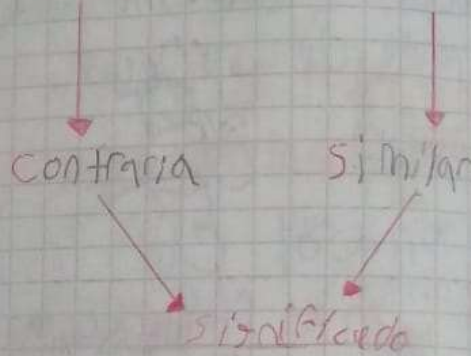 Contraria Similar
significado